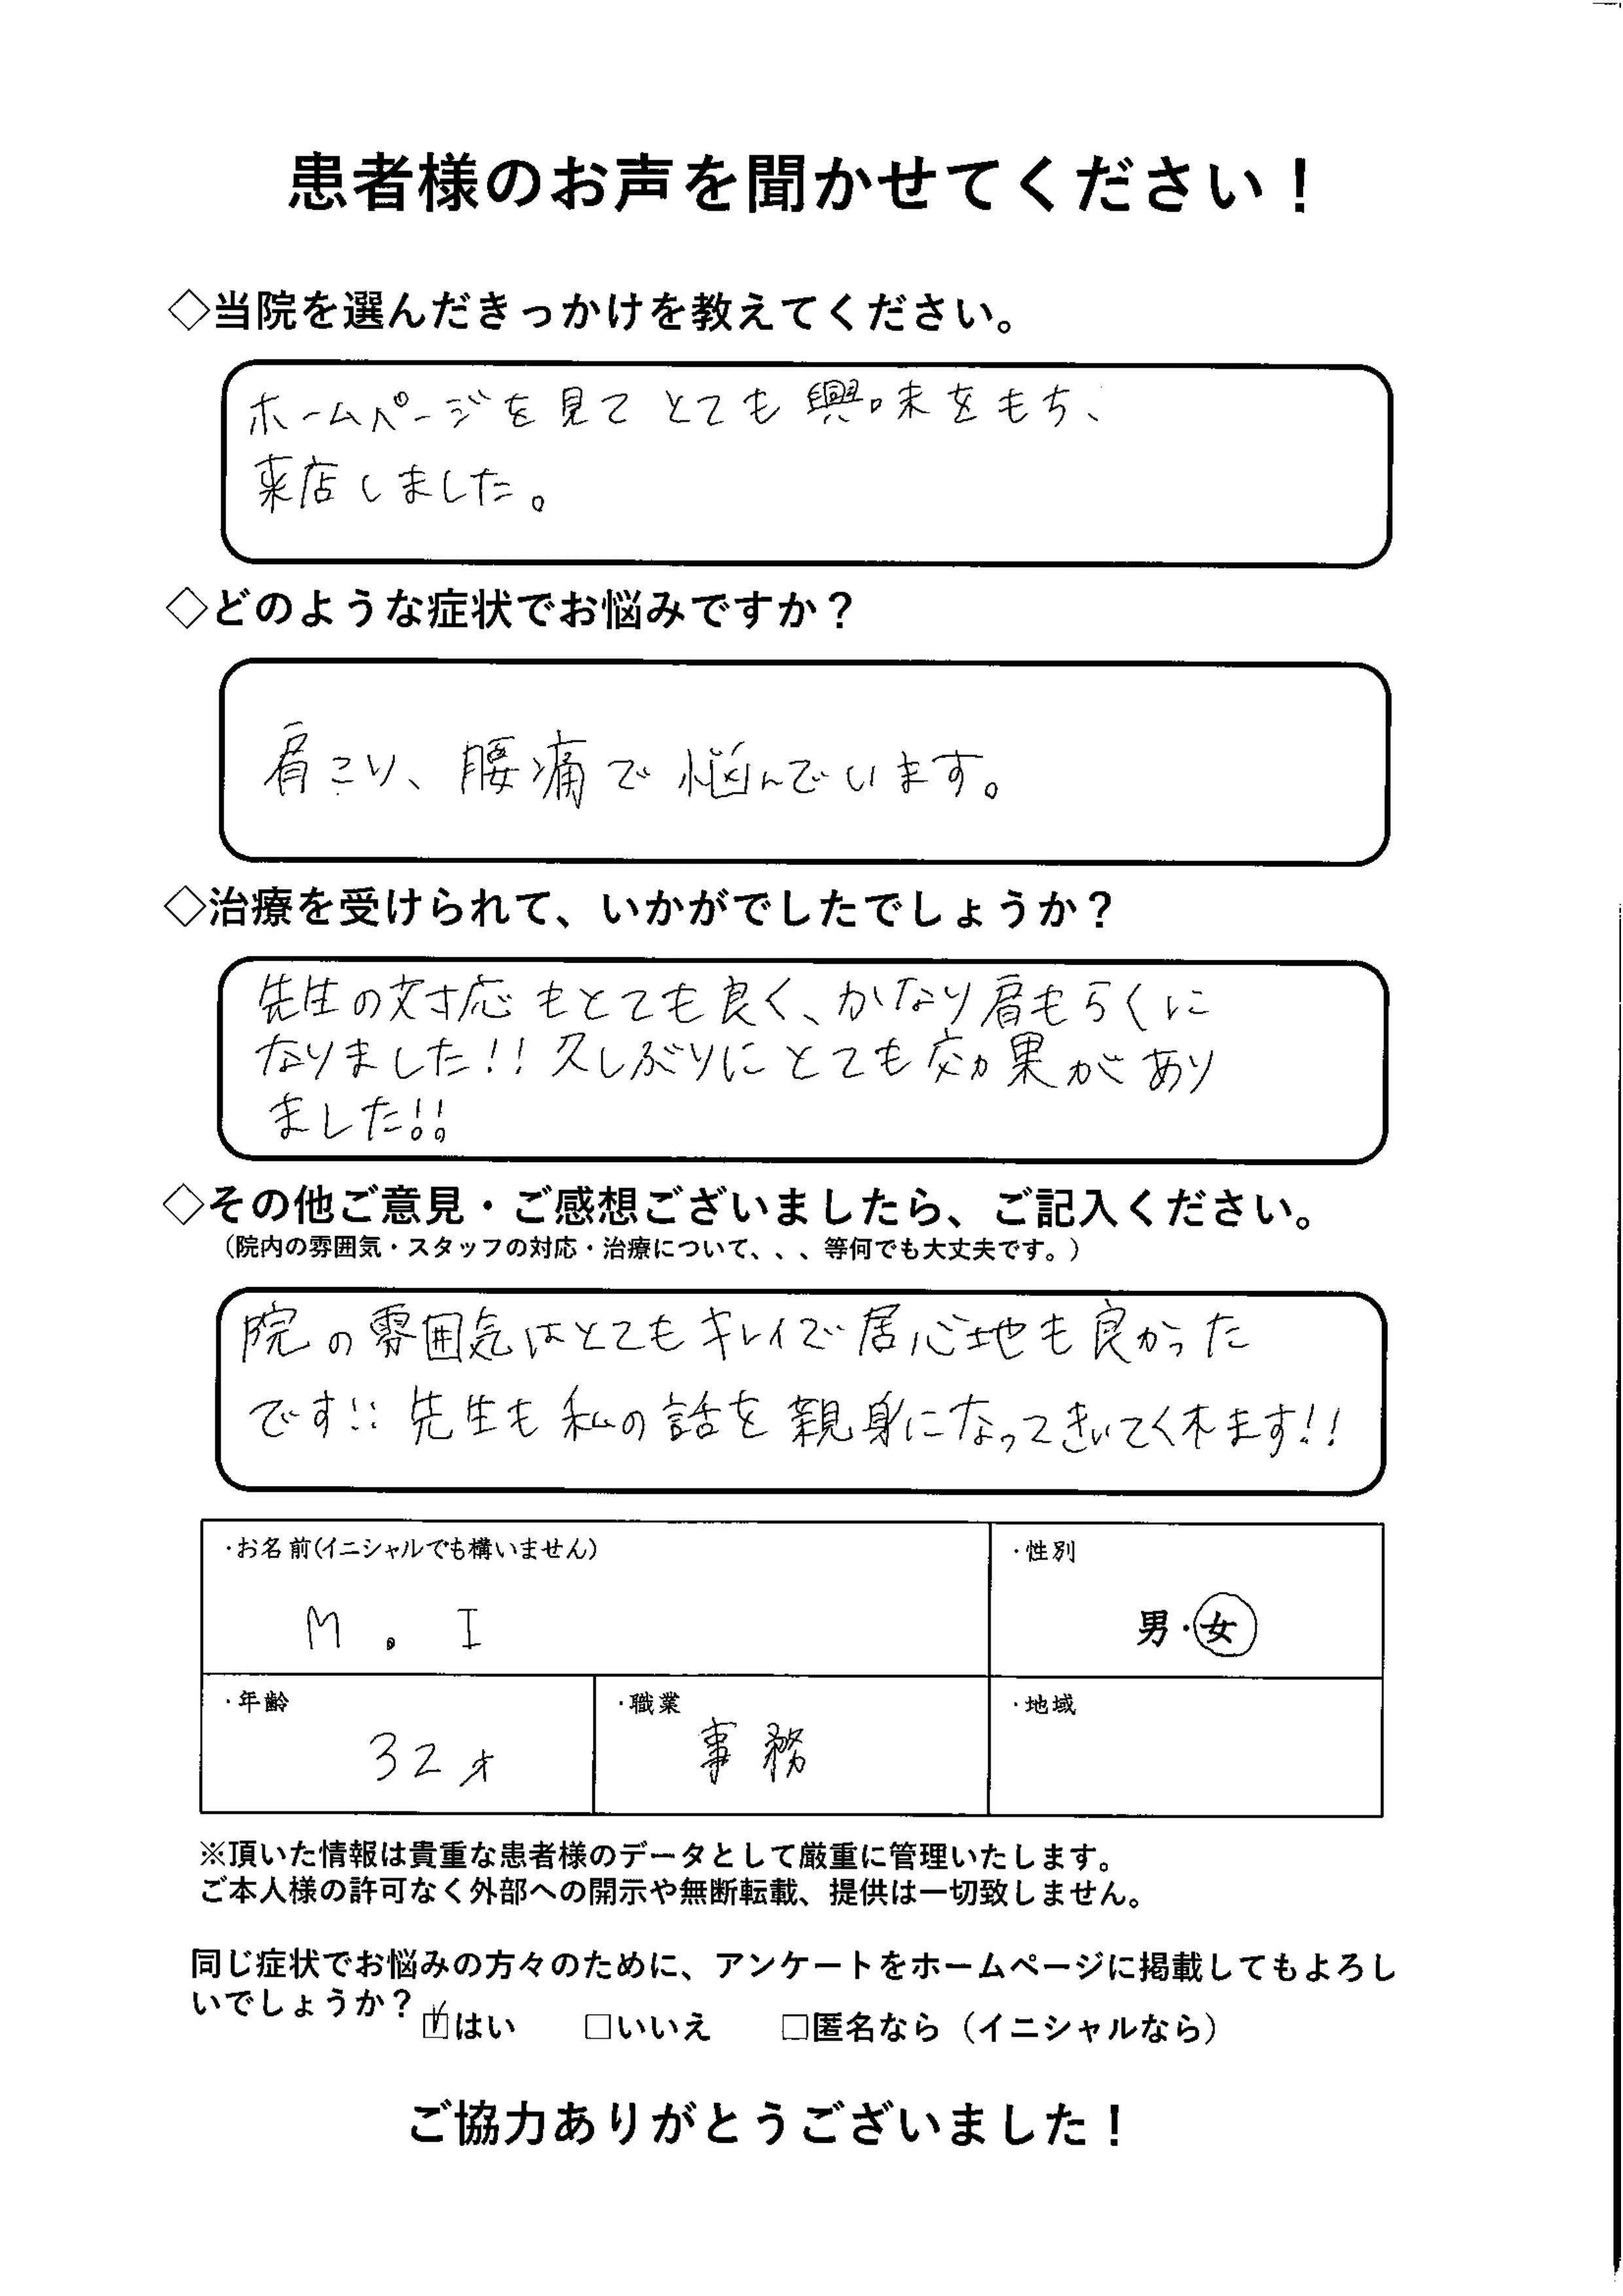 患者様のお声を聞かせてください！
◇当院を選んだきっかけを教えてください。
ホームページを見てとても興味をもち、
来店しました。
◇どのような症状でお悩みですか？
肩こり、腰痛で悩んでいます。
◇治療を受けられて、いかがでしたでしょうか？
先生の対応もとても良く、かなり肩もらくに
なりました!! 久しぶりにとても効果があり
ました!!
◇その他ご意見・ご感想ございましたら、ご記入ください。
（院内の雰囲気・スタッフの対応・治療について、、、等何でも大丈夫です。）
院の雰囲気はとてもキレイで居心地も良かった
です!! 先生も私の話を親身になってきいてくれます!!
・お名前(イニシャルでも構いません)
・性別
M . I
男・女
・年齢
・職業
・地域
32才
事務
※頂いた情報は貴重な患者様のデータとして厳重に管理いたします。
ご本人様の許可なく外部への開示や無断転載、提供は一切致しません。
同じ症状でお悩みの方々のために、アンケートをホームページに掲載してもよろし
いでしょうか？ ☑はい □いいえ □匿名なら（イニシャルなら）
ご協力ありがとうございました！